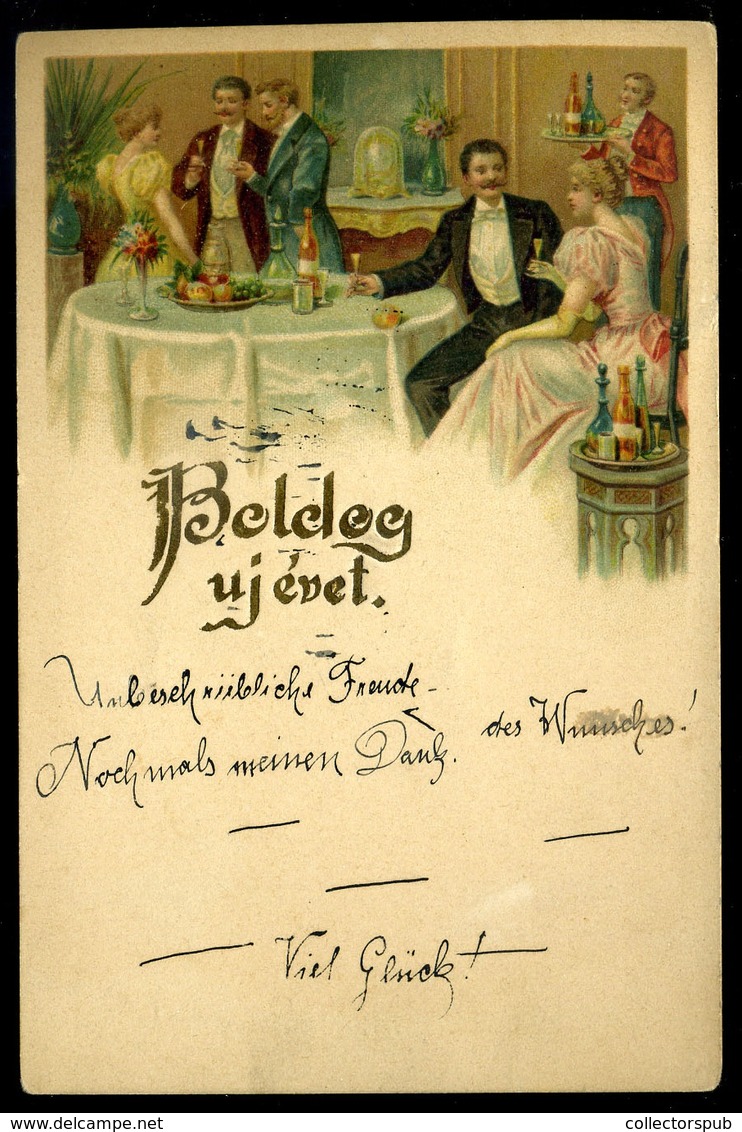 Boldog
uj évet.
Unbeschreibliche Freude
des Wunsches!
Nochmals meinen Dank.
Viel Glück!
www.delcampe.net
collectorspub